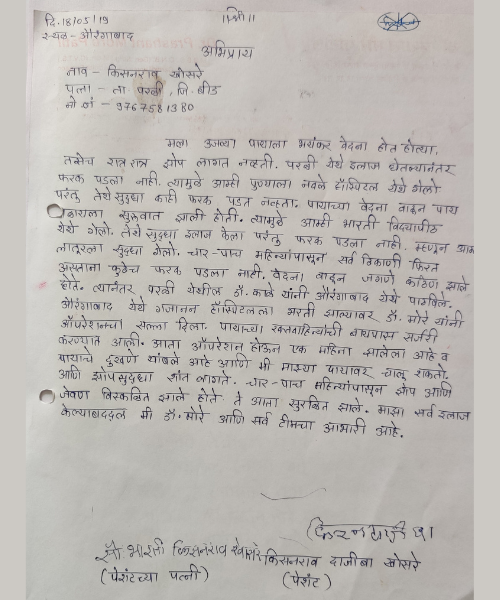 ॥श्री॥
दि. 18/05/19
स्थळ - औरंगाबाद
अभिप्राय
नाव - किसनराव खोसरे
पत्ता - ता. परळी, जि. बीड
मो नं - 9767581380
मला उजव्या पायाला भयंकर वेदना होत होत्या.
तसेच रात्र रात्र झोप लागत नव्हती. परळी येथे इलाज घेतल्यानंतर
फरक पडला नाही. त्यामुळे आम्ही पुण्याला नवले हॉस्पिटल येथे गेलो
परंतु तेथे सुद्धा काही फरक पडत नव्हता. पायाच्या वेदना वाढून पाय
व्हायला सुरुवात झाली होती. त्यामुळे आम्ही भारती विद्यापीठ
येथे गेलो. तेथे सुद्धा इलाज केला परंतु फरक पडला नाही. म्हणून
लातूरला सुद्धा गेलो. चार-पाच महिन्यांपासून सर्व ठिकाणी फिरत
असताना कुठेच फरक पडला नाही. वेदना वाढून जगणे कठीण झाले
होते. त्यानंतर परळी येथील डॉ. काळे यांनी औरंगाबाद येथे पाठविले.
औरंगाबाद येथे गजानन हॉस्पिटलला भरती झाल्यावर डॉ. मोरे यांनी
ऑपरेशनचा सल्ला दिला. पायाच्या रक्तवाहिन्यांची बायपास सर्जरी
करण्यात आली. आता ऑपरेशन होऊन एक महिना झालेला आहे व
पायाचे दुखणे थांबले आहे आणि मी माझ्या पायावर चालू शकतो.
आणि झोपसुद्धा शांत लागते. चार-पाच महिन्यांपासून झोप आणि
जेवण विस्कळित झाले होते ते आता सुरळित झाले. माझा सर्व इलाज
केल्याबद्दल मी डॉ. मोरे आणि सर्व टीमचा आभारी आहे.
सौ भारती किसनराव खोसरे
(पेशंटच्या पत्नी)
किसनराव दाजीबा खोसरे
(पेशंट)